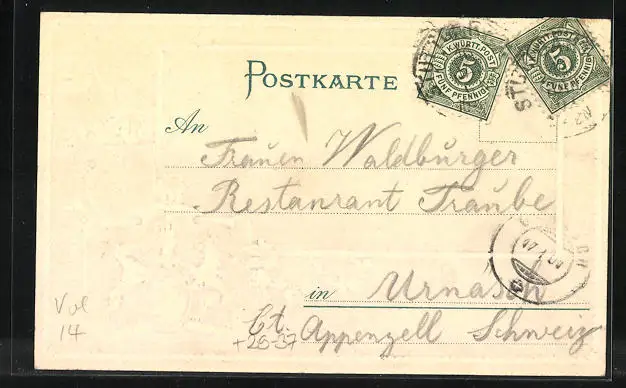 K.WÜRTT.POST
5
FÜNF PFENNIG
K.WÜRTT.POST
5
FÜNF PFENNIG
POSTKARTE
An
Frauen Waldburger
Restaurant Traube
in Urnäsch
Ct. Appenzell Schweiz
+26-37
Vol
14